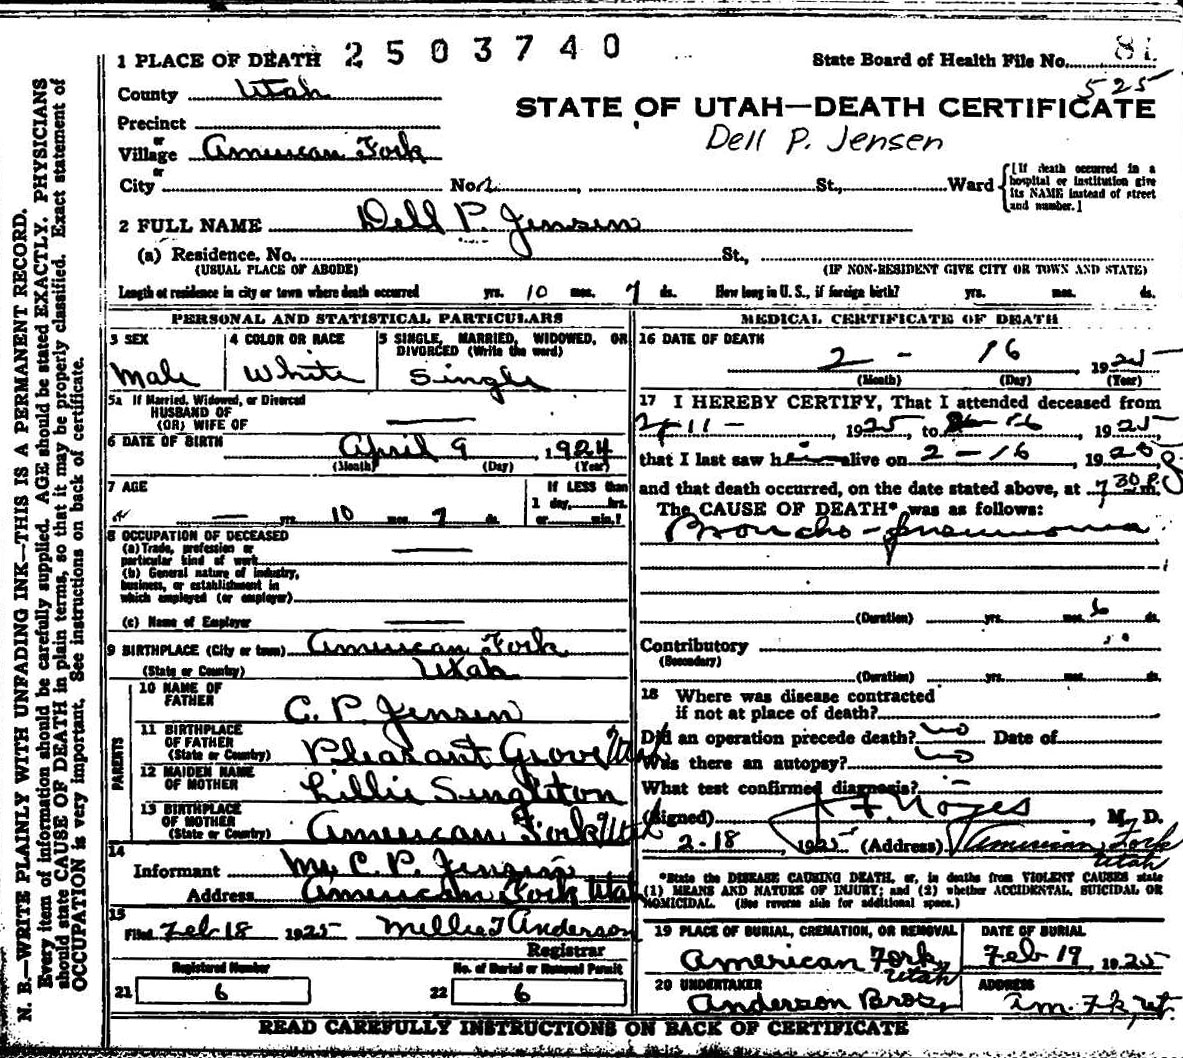 1 PLACE OF DEATH 2503740
State Board of Health File No. 81
525
County Utah
STATE OF UTAH—DEATH CERTIFICATE
Precinct
Dell P. Jensen
or
Village American Fork
or
City No. St., Ward
[If death occurred in a hospital or institution give its NAME instead of street and number.]
2 FULL NAME Dell P. Jensen
(a) Residence. No. St.,
(USUAL PLACE OF ABODE) (IF NON-RESIDENT GIVE CITY OR TOWN AND STATE)
Length of residence in city or town where death occurred yrs. 10 mos. 7 ds. How long in U. S., if foreign birth? yrs. mos. ds.
PERSONAL AND STATISTICAL PARTICULARS
3 SEX
Male
4 COLOR OR RACE
White
5 SINGLE, MARRIED, WIDOWED, OR
DIVORCED (Write the word)
Single
5a If Married, Widowed, or Divorced
HUSBAND OF
(OR) WIFE OF
6 DATE OF BIRTH April 9, 1924
(Month) (Day) (Year)
7 AGE
— yrs. 10 mos. 7 ds.
If LESS than
1 day, hrs.
or min.?
8 OCCUPATION OF DECEASED
(a) Trade, profession or
particular kind of work
(b) General nature of industry,
business, or establishment in
which employed (or employer)
(c) Name of Employer
9 BIRTHPLACE (City or town) American Fork
(State or Country) Utah
PARENTS
10 NAME OF
FATHER C. P. Jensen
11 BIRTHPLACE
OF FATHER
(State or Country) Pleasant Grove Utah
12 MAIDEN NAME
OF MOTHER Lillie Singleton
13 BIRTHPLACE
OF MOTHER
(State or Country) American Fork Utah
14
Informant C. P. Jensen
Address American Fork Utah
15
Filed Feb 18 1925 Millie T Anderson
Registrar
Registered Number No. of Burial or Removal Permit
21 6 22 6
MEDICAL CERTIFICATE OF DEATH
16 DATE OF DEATH
2 - 16 1925
(Month) (Day) (Year)
17 I HEREBY CERTIFY, That I attended deceased from
2-11- 1925, to 2-16, 1925
that I last saw him alive on 2-16, 1925
and that death occurred, on the date stated above, at 7 30 P. m.
The CAUSE OF DEATH* was as follows:
Broncho-pneumonia
(Duration) yrs. mos. 6 ds.
Contributory
(Secondary)
(Duration) yrs. mos. ds.
18 Where was disease contracted
if not at place of death?
Did an operation precede death? no Date of
Was there an autopsy? no
What test confirmed diagnosis? —
(Signed) J F. Noyes, M. D.
2-18, 1925 (Address) American Fork
Utah
*State the DISEASE CAUSING DEATH, or, in deaths from VIOLENT CAUSES state
(1) MEANS AND NATURE OF INJURY; and (2) whether ACCIDENTAL, SUICIDAL OR
HOMICIDAL. (See reverse side for additional space.)
19 PLACE OF BURIAL, CREMATION, OR REMOVAL
American Fork,
Utah
DATE OF BURIAL
Feb 19 1925
20 UNDERTAKER
Anderson Bros,
ADDRESS
Am. Fk, Ut.
READ CAREFULLY INSTRUCTIONS ON BACK OF CERTIFICATE
N. B.—WRITE PLAINLY WITH UNFADING INK—THIS IS A PERMANENT RECORD.
Every item of information should be carefully supplied. AGE should be stated EXACTLY. PHYSICIANS
should state CAUSE OF DEATH in plain terms, so that it may be properly classified. Exact statement of
OCCUPATION is very important. See instructions on back of certificate.